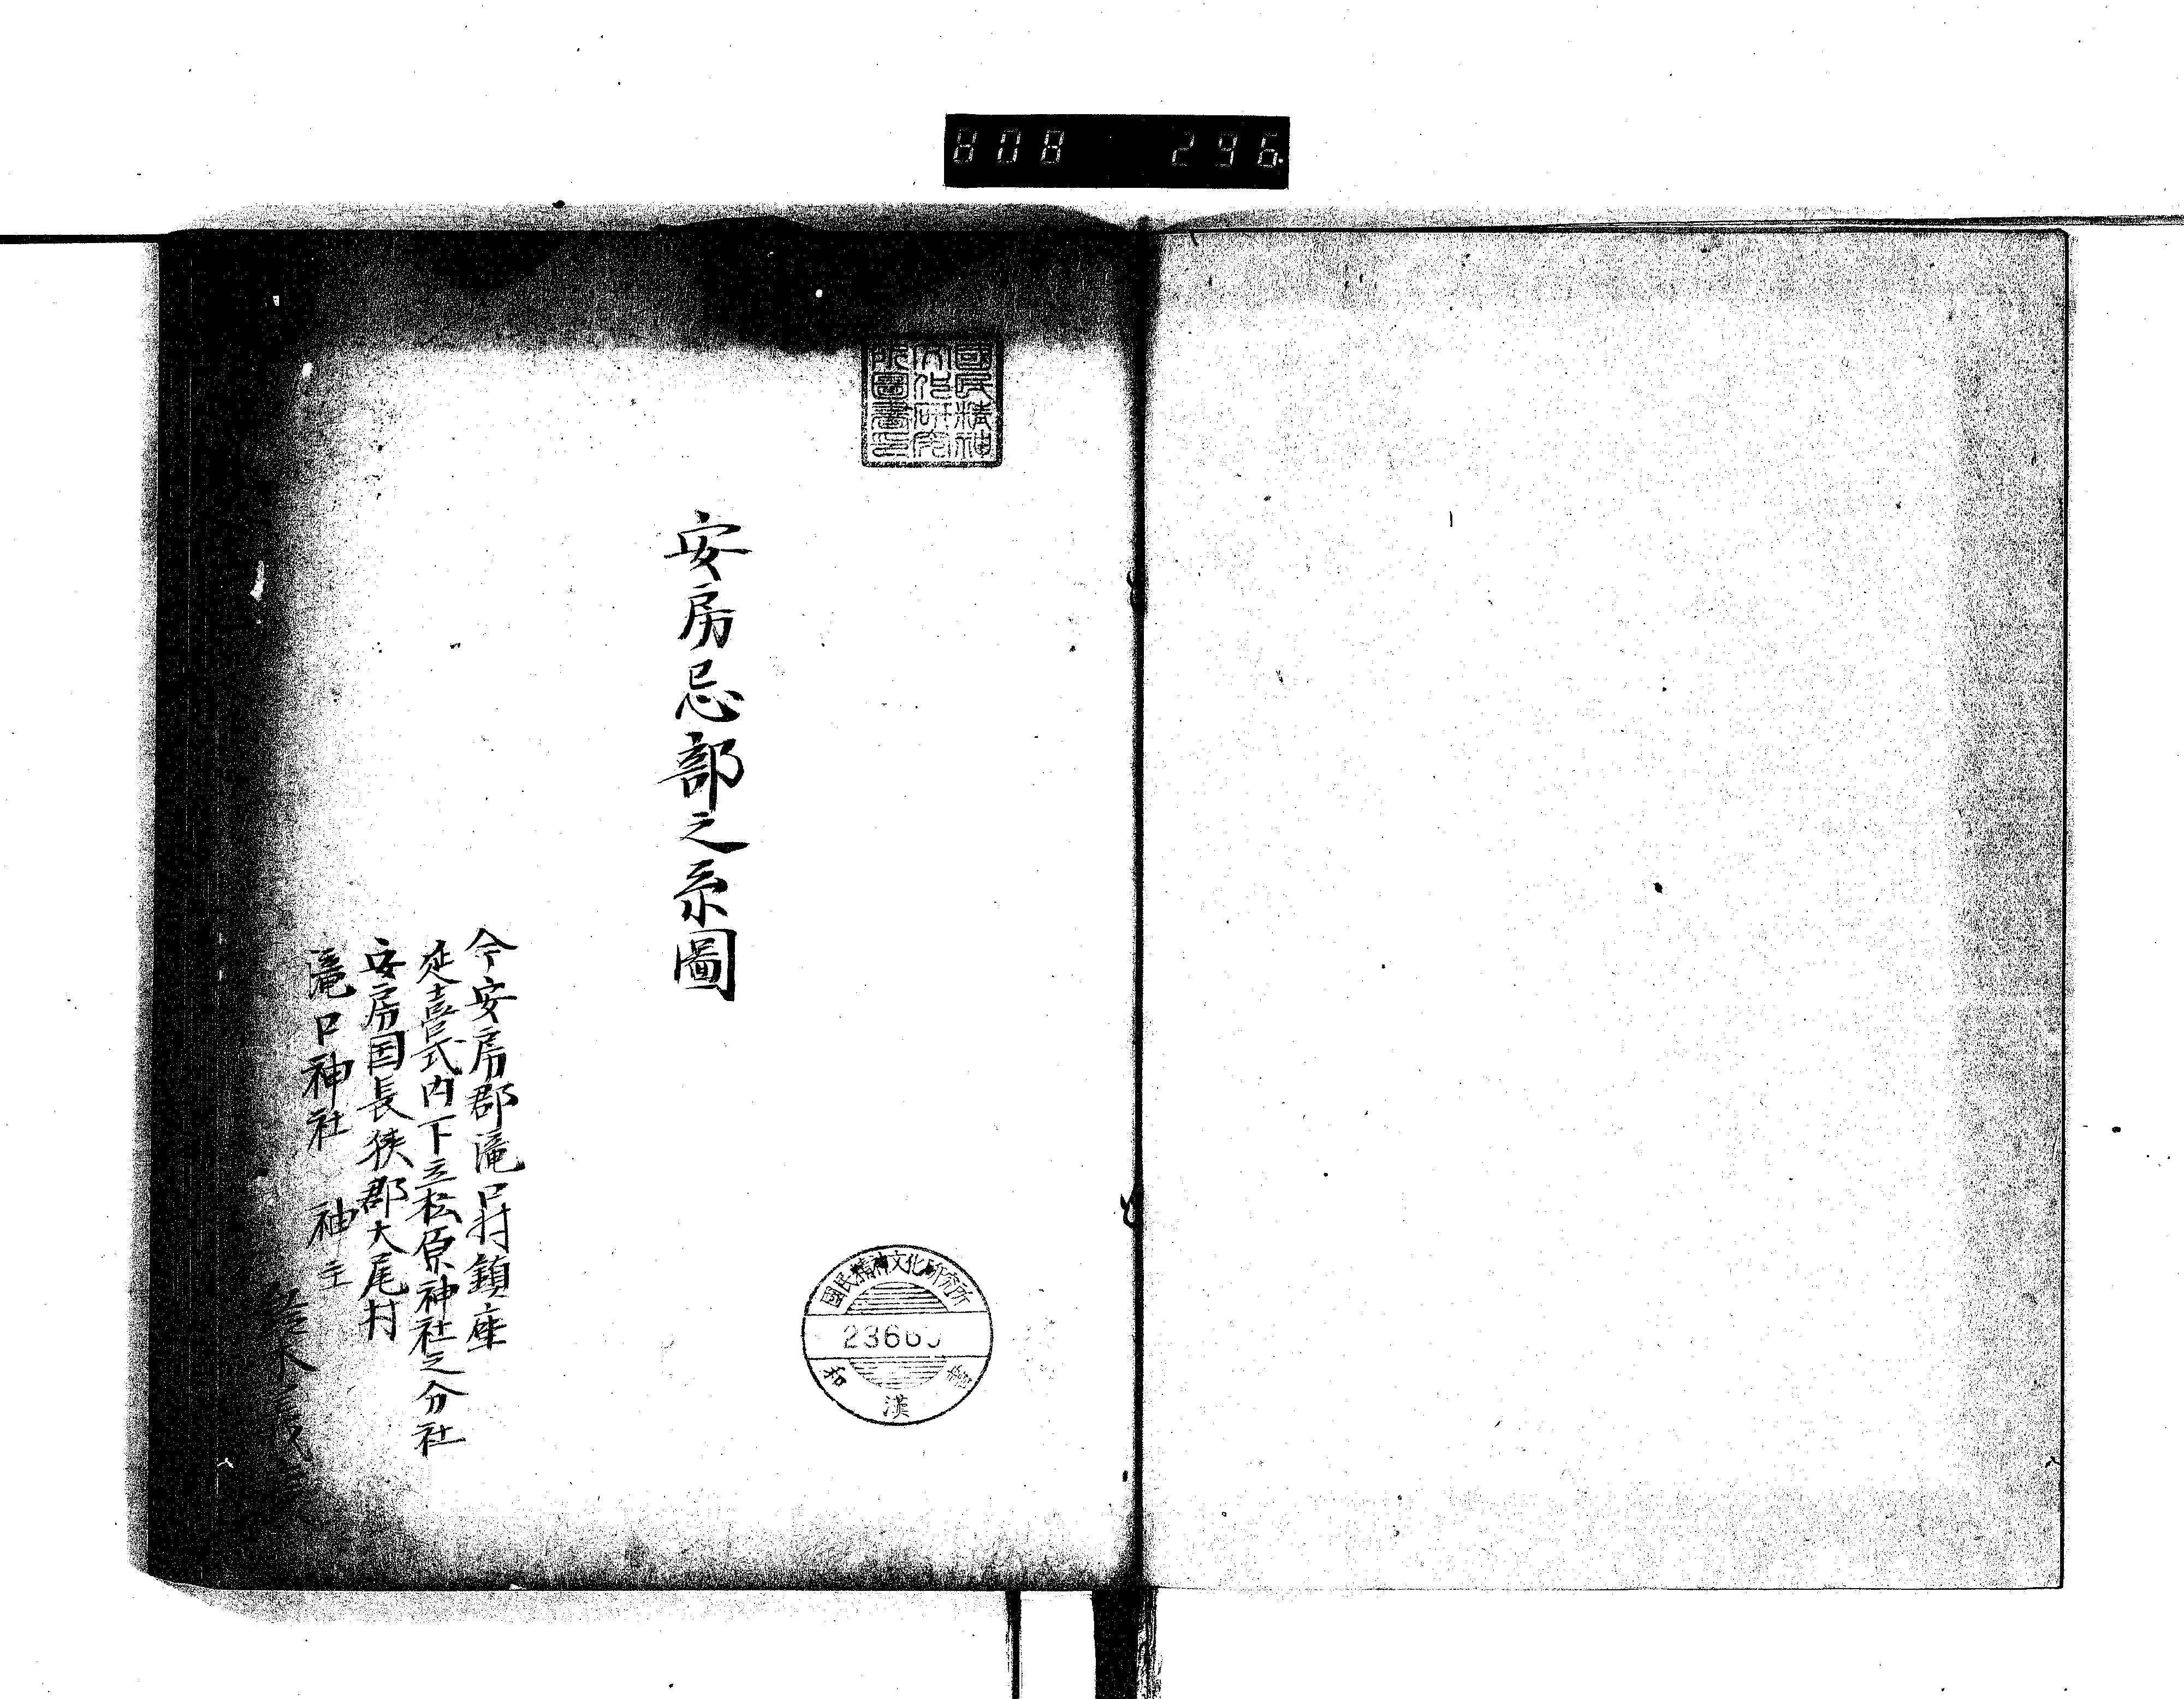 808 296
國民精神
文化研究
所圖書印
安房忌部之系圖
今安房郡滝口村鎮座
延喜式内下立松原神社之分社
安房国長狭郡大尾村
滝口神社 神主
國民精神文化研究所
2366
和
漢
書